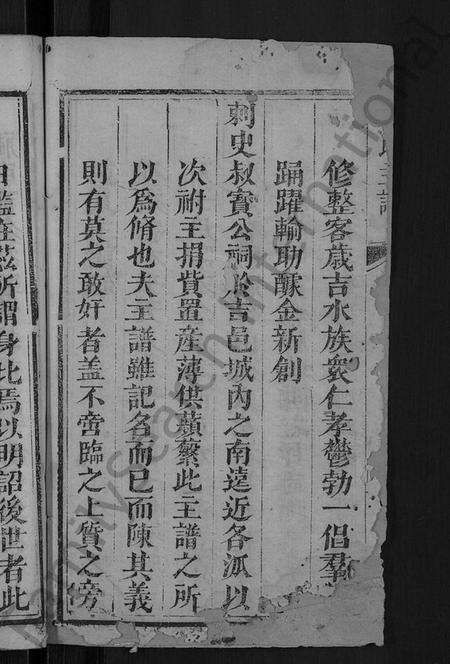 主譜
修整客歲吉水族衆仁孝鬱勃一倡羣
踴躍輸助醵金新創
刺史叔寳公祠於吉邑城内之南遠近各派以
次祔主捐貲置産薄供蘋蘩此主譜之所
以爲脩也夫主譜雖記名而已而陳其義
則有莫之敢奸者盖不啻臨之上質之傍
鑑在兹所謂身此焉以明詔後世者此
FamilySearch International